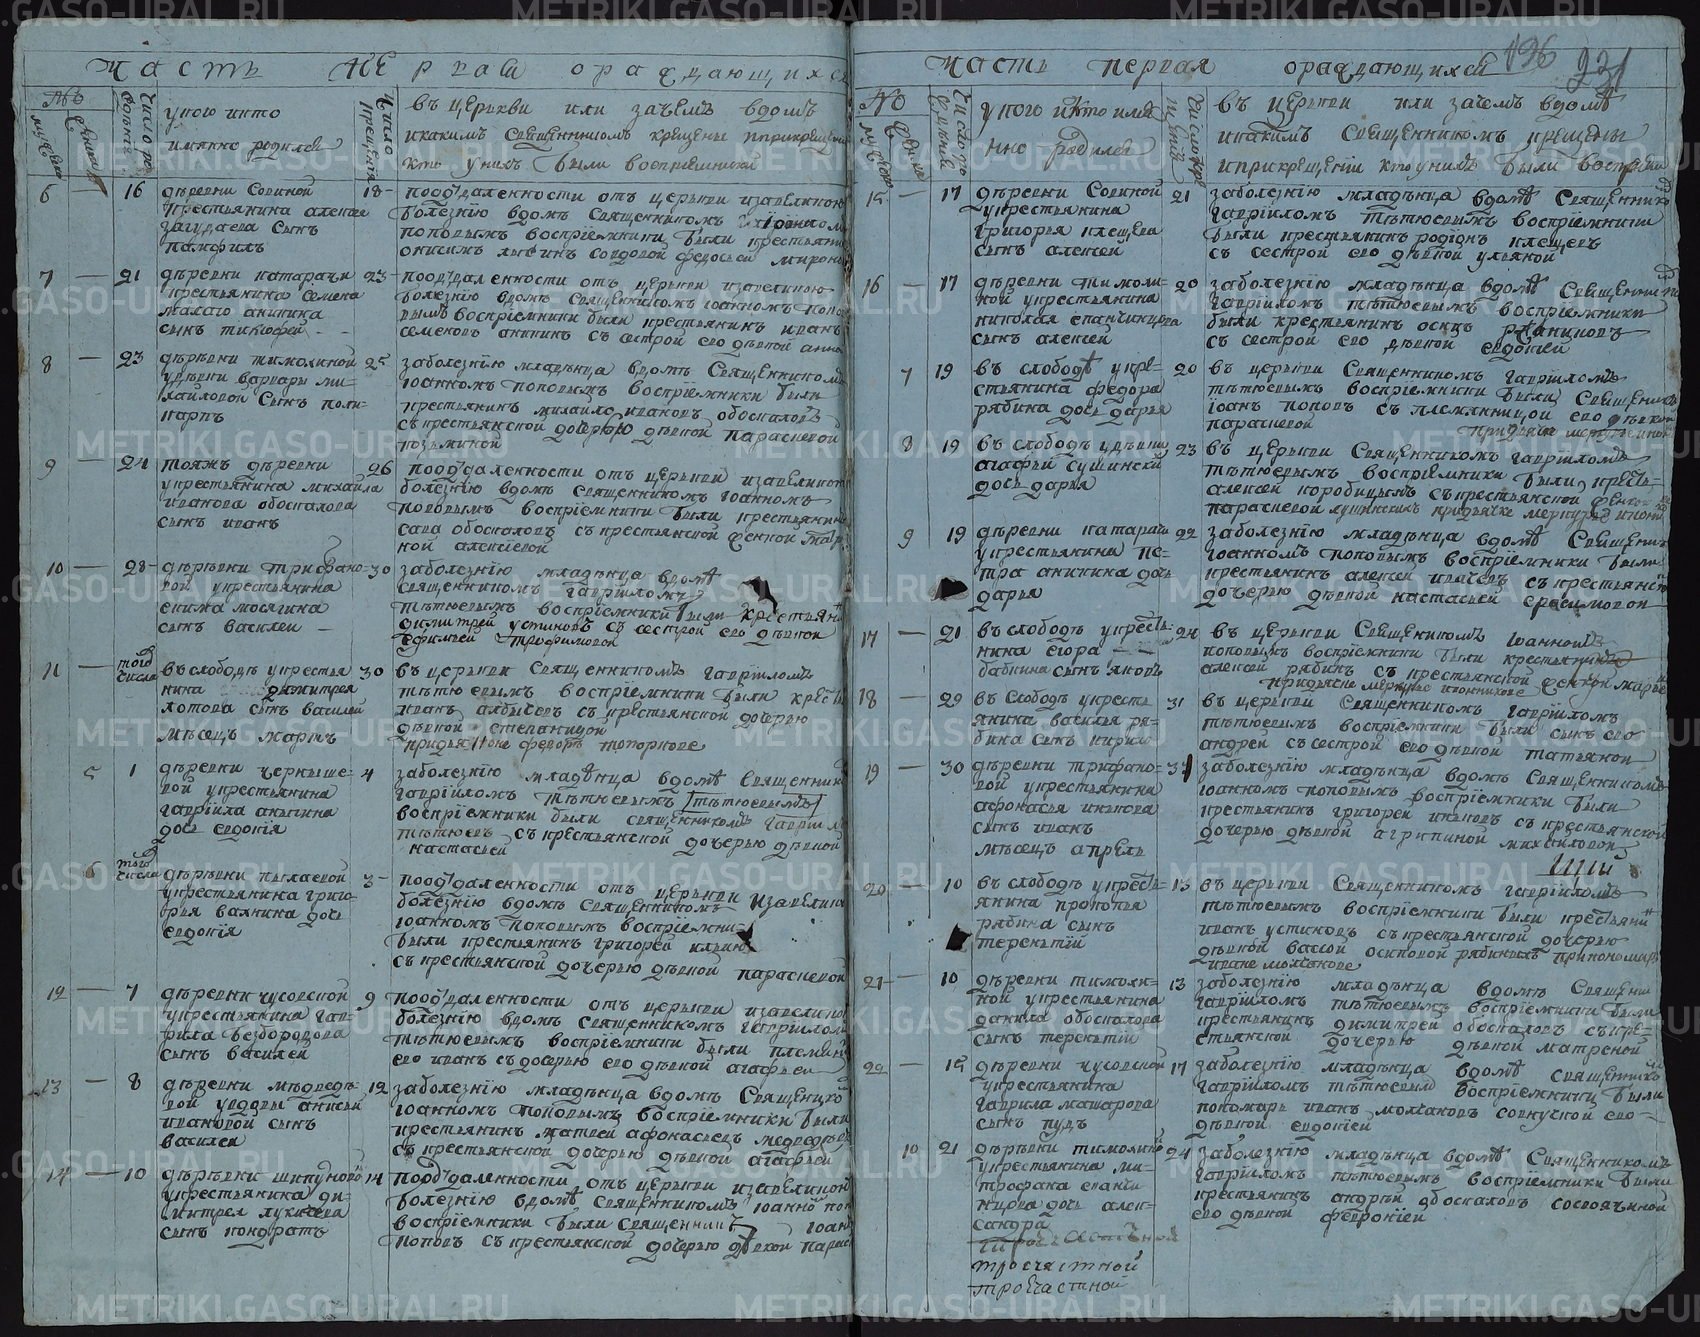 Часть Первая ораждающихся
№
мужеска
женска
Число рождения
у кого и кто
имянно родился
Число крещения
въ церькви или зачемъ вдомѣ
икакимъ священникомъ крещены иприкрещении
кто унихъ были восприемники
6 — 16 деревни Совиной 18
крестьянина алексея
сынъ
памфилъ
поотдаленности отъ церькви изавеликою
болезнію вдомѣ священникомъ
поповымъ воспріемники были крестьянинъ
7 — 21 деревни катарачи 23
крестьянина семена
малаго аникина
сынъ тимофей
поотдаленности отъ церькви изавеликою
болезнію вдомѣ священникомъ иоанномъ попо
вымъ воспріемники были крестьянинъ иванъ
семеновъ аникинъ съ сестрой его дѣвкой анно
8 — 23 деревни тимохиной 25
удѣвки варвары ми-
хайловой сынъ поли-
карпъ
заболезнію младѣнца вдомѣ священникомъ
иоанномъ поповымъ воспріемники были
крестьянинъ михайло ивановъ обоскаловъ
съ крестьянской дочерью дѣвкой параскевой
козьминой
9 — 24 тояжъ деревни 26
укрестьянина михайла
иванова обоскалова
сынъ иванъ
поотдаленности отъ церькви изавеликою
болезнію вдомѣ священникомъ иоанномъ
поповымъ воспріемники были крестьянинъ
сава обоскаловъ съ крестьянской женкой
ной алексіевой
10 — 28 деревни трифано- 30
вой укрестьянина
екима мосягина
сынъ василей
заболезнію младѣнца вдомѣ
священникомъ гавріиломъ
тѣтюевымъ воспріемники были крестьян
димитрей устиновъ съ сестрой его дѣвкой
ефимьей трофимовой
11 — того числа въ слободѣ укрестья 30
нина димитрея
лотова сынъ василей
въ церькви священникомъ гавріиломъ
тѣтюевымъ воспріемники были крест
иванъ албычевъ съ крестьянской дочерью
дѣвкой степанидой
придьячке федотѣ топоркове
мѣсецъ мартъ
5 1 деревни черныше- 4
вой укрестьянина
гавріила аникина
дочь евдокія
заболезнію младѣнца вдомѣ священнико
гавріиломъ тѣтюевымъ тѣтюевымъ
воспріемники были священникъ гавріил
тѣтюевъ съ крестьянской дочерью дѣвкой
настасьей
6 того числа деревни пылаевой 3
укрестьянина григо-
рья вяткина дочь
евдокія
поотдаленности отъ церькви изавелико
болезнію вдомѣ священникомъ
иоанномъ поповымъ воспріемни-
были крестьянинъ григорей
съ крестьянской дочерью дѣвкой параскевой
12 — 7 деревни чусовской 9
укрестьянина гав-
рила безбородова
сынъ василей
поотдаленности отъ церькви изавелико
болезнію вдомѣ священникомъ гавріилом
тѣтюевымъ воспріемники были племян
его иванъ съ дочерью его дѣвкой агафьей
13 — 8 деревни мѣдведѣ- 12
вой увдовы анисьи
ивановой сынъ
василей
заболезнію младѣнца вдомѣ священнико
иоанномъ поповымъ воспріемники были
крестьянинъ матвей афонасьевъ медведѣвъ
съ крестьянской дочерью дѣвкой агафьей
14 — 10 деревни шипуновой 14
укрестьянина ди-
митрея лукичева
сынъ кондратъ
поотдаленности отъ церькви изавеликой
болезнію вдомѣ священникомъ иоанно поп
воспріемники были священникъ иоан
поповъ съ крестьянской дочерью дѣвкой параск
196 231
Часть первая ораждающихся
№
мужеска
женска
Число рождения
укого икто имя
нно родился
Число крещения
въ церькви или зачемъ вдомѣ
икакимъ священникомъ крещены
иприкрещеніи кто унихъ были воспріем
15 — 17 деревни Совиной 21
укрестьянина
григорья клещева
сынъ алексей
заболезнію младѣнца вдомѣ священнико
гавріиломъ тѣтюевымъ воспріемники
были крестьянинъ родіонъ клещевъ
съ сестрой его дѣвкой ульяной
16 — 17 деревни тимохи- 20
ной укрестьянина
николая епанчинцева
сынъ алексей
заболезнію младѣнца вдомѣ священни
гавріиломъ тѣтюевымъ воспріемники
были крестьянинъ осипъ
съ сестрой его дѣвкой евдокіей
7 19 въ слободѣ укре- 20
стьянина федора
рябина дочь дарья
въ церькви священникомъ гавріиломъ
тѣтюевымъ воспріемники были священ
іоанъ поповъ съ племянницой его дѣвкой
параскевой
8 19 въ слободѣ удѣвки 23
агафьи сушинской
дочь дарья
въ церькви священникомъ гавріиломъ
тѣтюевымъ воспріемники были кресть-
алексей коробицынъ съ крестьянской женкой
параскевой
9 19 деревни катарачи 22
укрестьянина пе-
тра аникина дочь
дарья
заболезнію младѣнца вдомѣ священник
иоанномъ поповымъ воспріемники были
крестьянинъ алексей ивачевъ съ крестьянско
дочерью дѣвкой настасьей ерасимовой
17 — 21 въ слободѣ укресть- 24
нина егора
бабкина сынъ яковъ
въ церькви священникомъ иоанномъ
поповымъ воспріемники были крестьянинъ
алексей рябинъ съ крестьянской женкой марье
18 — 29 въ слободѣ укресть 31
янина василья ря-
бина сынъ кирило
въ церькви священникомъ гавріиломъ
тѣтюевымъ воспріемники были сынъ его
андрей съ сестрой его дѣвкой татьяной
19 — 30 деревни трифано- 31
вой укрестьянина
афонасья иванова
сынъ иванъ
заболезнію младѣнца вдомѣ священникомъ
иоанномъ поповымъ воспріемники были
крестьянинъ григорей ивановъ съ крестьянской
дочерью дѣвкой агрипиной михайловой
мѣсецъ апрель
20 — 10 въ слободѣ укресть- 13
янина прокопья
рябина сынъ
терентій
въ церькви священникомъ гавріиломъ
тѣтюевымъ воспріемники были крестьянин
иванъ устиновъ съ крестьянской дочерью
дѣвкой васой осиповой рябиныхъ припономарѣ
иване молчанове
21 — 10 деревни тимохи- 13
ной укрестьянина
данила обоскалова
сынъ терентій
заболезнію младѣнца вдомѣ священни
гавріиломъ тѣтюевымъ воспріемники были
крестьянинъ димитрей обоскаловъ съ кре-
стьянской дочерью дѣвкой матреной
22 — 15 деревни чусовской 17
укрестьянина
гаврила машарова
сынъ пудъ
заболезнію младѣнца вдомѣ священникъ
гавріиломъ тѣтюевымъ воспріемники были
пономарь иванъ молчановъ совнучкой его
дѣвкой евдокіей
10 21 деревни тимохиной 24
укрестьянина ми-
трофана епанчи-
дочь алек-
сандра
заболезнію младѣнца вдомѣ священникомъ
гавріиломъ тѣтюевымъ воспріемники были
крестьянинъ андрей обоскаловъ
его дѣвкой февроніей
троечастной
троечастной
METRIKI.GASO-URAL.RU